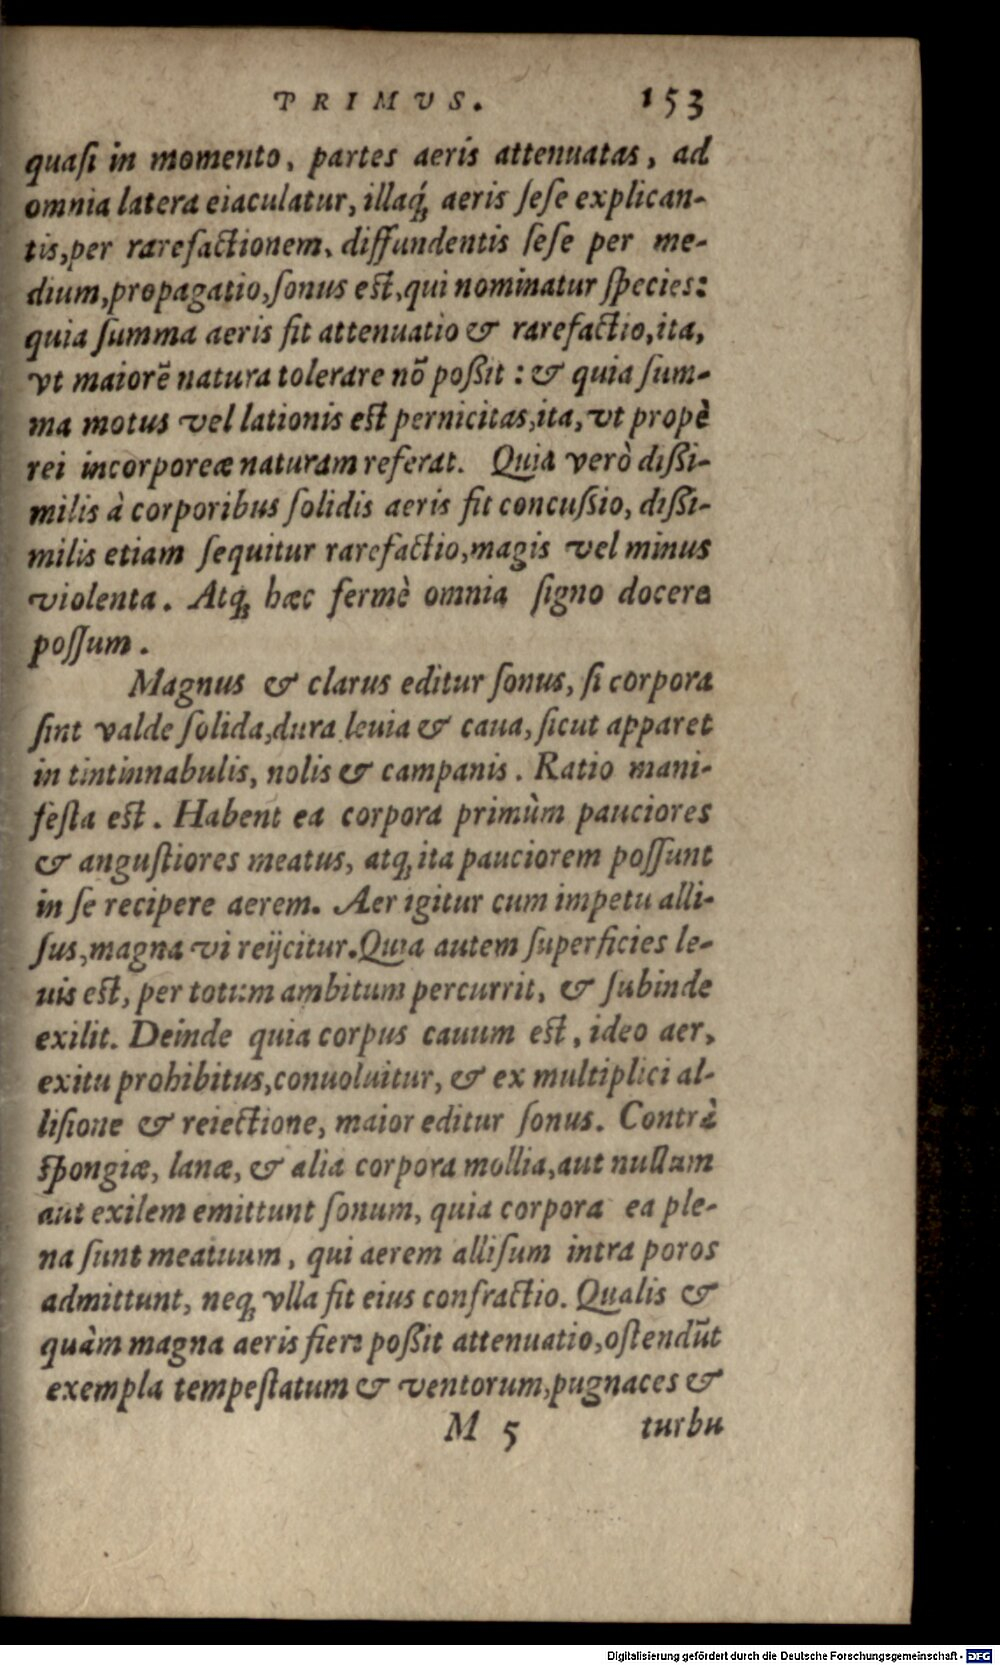 PRIMVS. 153
quaſi in momento, partes aeris attenuatas, ad
omnia latera eiaculatur, illaq́; aeris ſeſe explican-
tis, per rarefactionem, diffundentis ſeſe per me-
dium, propagatio, ſonus eſt, qui nominatur ſpecies:
quia ſumma aeris fit attenuatio & rarefactio, ita,
vt maiorē natura tolerare nõ poßit: & quia ſum-
ma motus vel lationis eſt pernicitas, ita, vt propè
rei incorporeæ naturam referat. Quia verò dißi-
milis à corporibus ſolidis aeris fit concuſsio, dißi-
milis etiam ſequitur rarefactio, magis vel minus
violenta. Atq; hæc fermè omnia ſigno docere
poſſum.
Magnus & clarus editur ſonus, ſi corpora
ſint valde ſolida, dura leuia & caua, ſicut apparet
in tintinnabulis, nolis & campanis. Ratio mani-
feſta eſt. Habent ea corpora primùm pauciores
& anguſtiores meatus, atq; ita pauciorem poſſunt
in ſe recipere aerem. Aer igitur cum impetu alli-
ſus, magna vi reijcitur. Quia autem ſuperficies le-
uis eſt, per totum ambitum percurrit, & ſubinde
exilit. Deinde quia corpus cauum eſt, ideo aer,
exitu prohibitus, conuoluitur, & ex multiplici al-
liſione & reiectione, maior editur ſonus. Contrà
ſpongiæ, lanæ, & alia corpora mollia, aut nullum
aut exilem emittunt ſonum, quia corpora ea ple-
na ſunt meatuum, qui aerem alliſum intra poros
admittunt, neq; vlla fit eius confractio. Qualis &
quàm magna aeris fieri poßit attenuatio, oſtendūt
exempla tempeſtatum & ventorum, pugnaces &
M 5 turbu
Digitalisierung gefördert durch die Deutsche Forschungsgemeinschaft - DFG